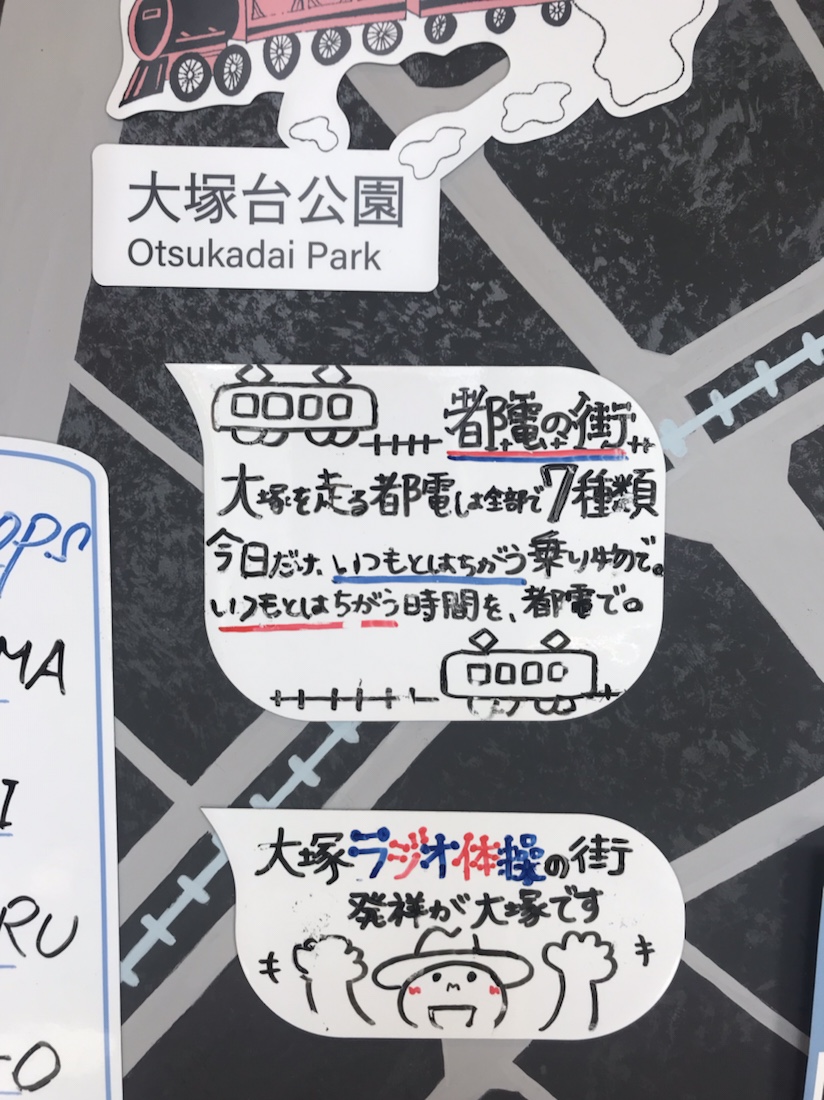 大塚台公園
Otsukadai Park
都電の街
大塚を走る都電は全部で7種類
今日だけ、いつもとはちがう乗り物で。
いつもとはちがう時間を、都電で。
大塚ラジオ体操の街
発祥が大塚です
ops
MA
I
RU
O